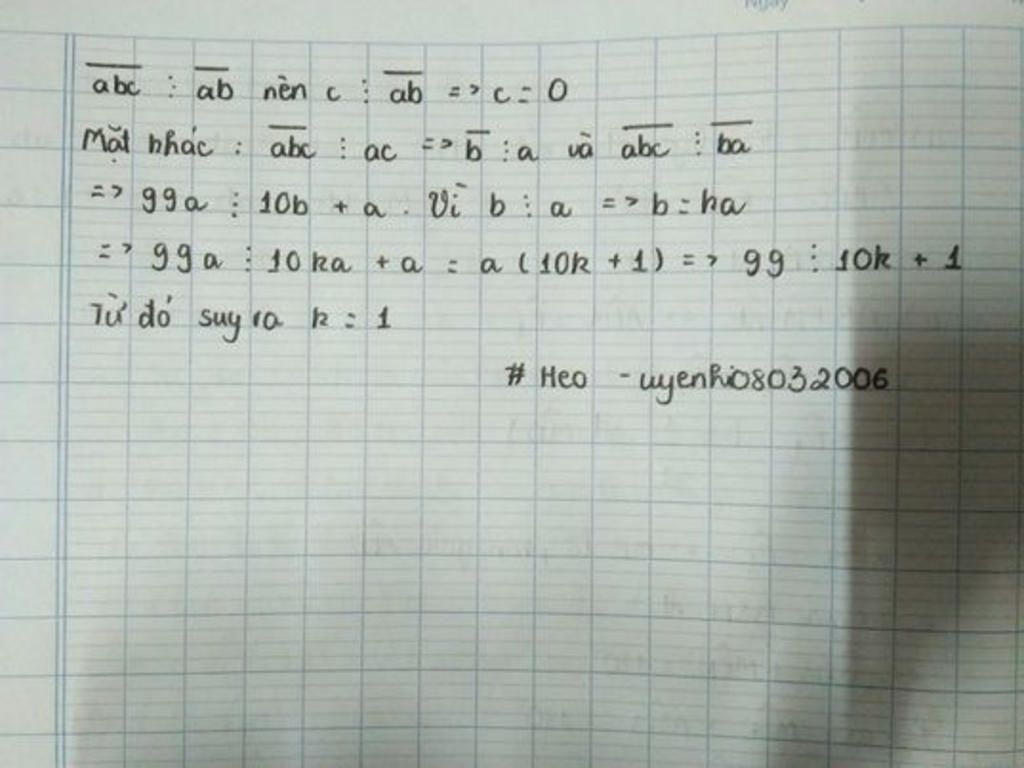 Ngày
$\overline{abc}$ ⋮ $\overline{ab}$ nên c ⋮ $\overline{ab}$ => c = 0
Mặt khác : $\overline{abc}$ ⋮ ac => $\overline{b}$ ⋮ a và $\overline{abc}$ ⋮ $\overline{ba}$
=> 99a ⋮ 10b + a . Vì b ⋮ a => b = ka
=> 99a ⋮ 10ka + a = a (10k + 1) => 99 ⋮ 10k + 1
Từ đó suy ra k = 1
# Heo - uyenhi08032006